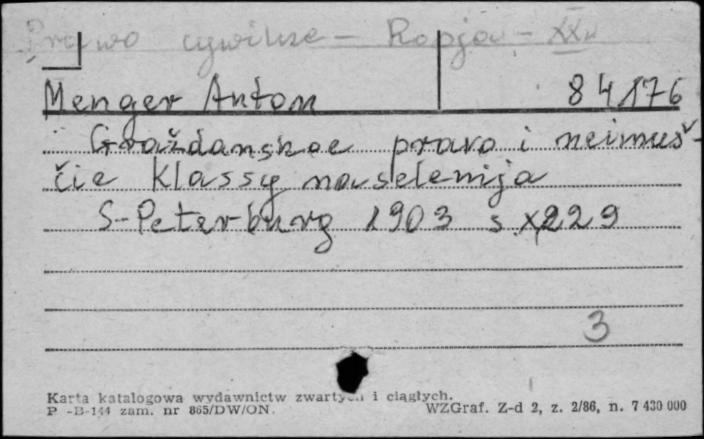 Prawo cywilne - Rosja - XX w
Menger Anton 84176
Graždanskoe pravo i neimuš-
čie klassy naselenija
S-Peterburg 1903 s X, 229
3
Karta katalogowa wydawnictw zwartych i ciągłych.
P -B-144 zam. nr 865/DW/ON. WZGraf. Z-d 2, z. 2/86, n. 7 430 000